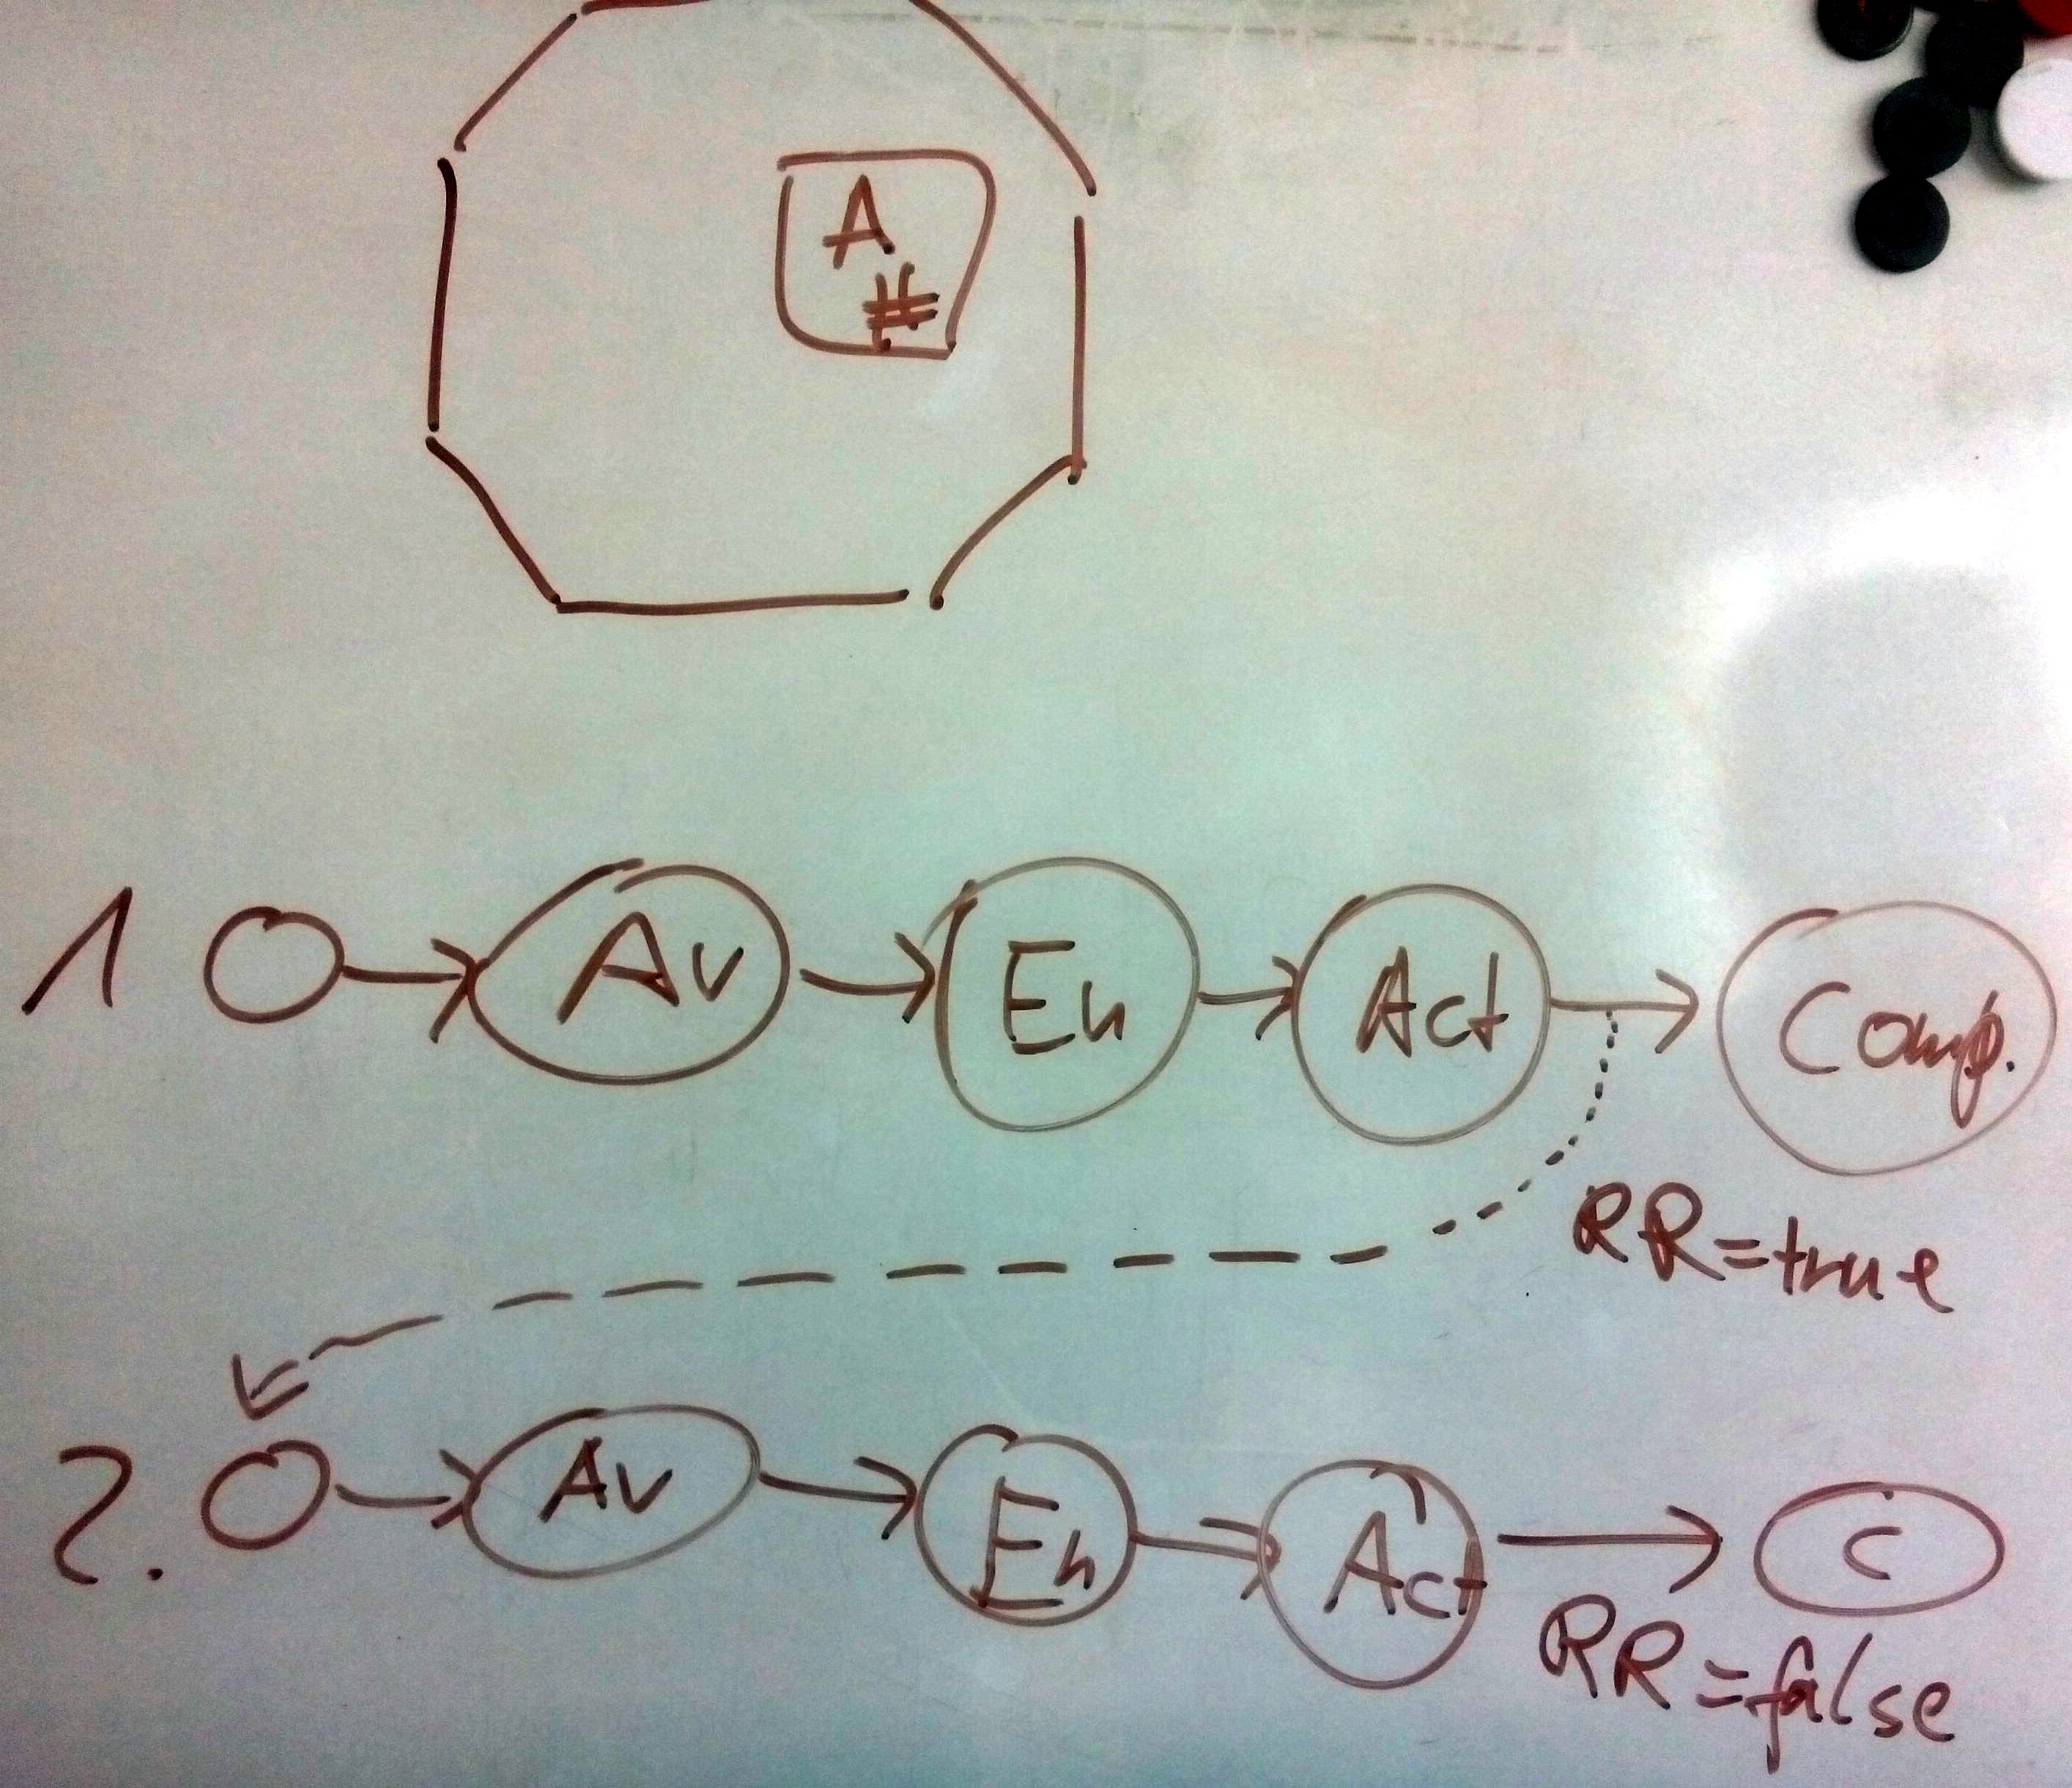 A
#
1 Av En Act Comp.
RR=true
2. Av En Act C
RR=false